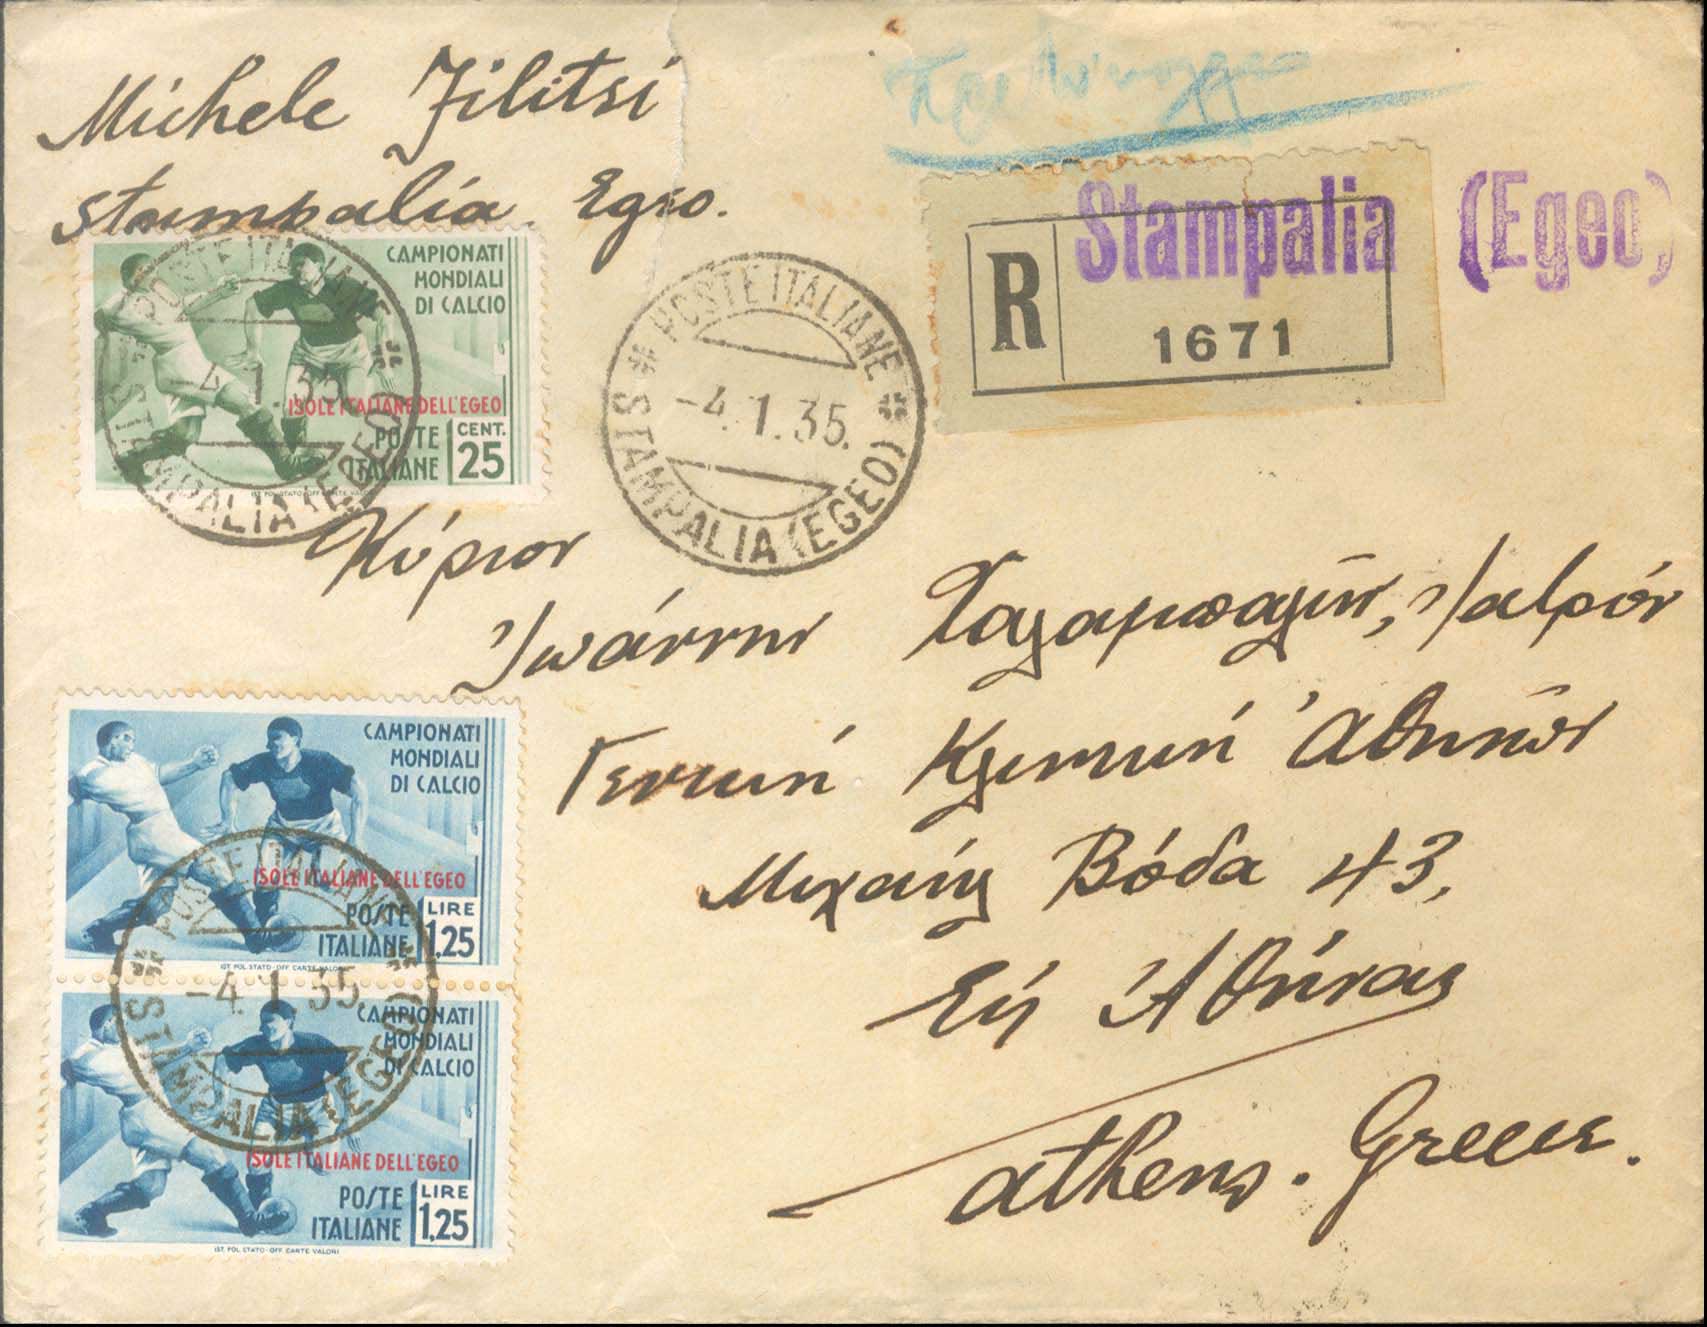 Michele Filitsi
Stampalia Egeo.
Stampalia (Egeo)
R
1671
CAMPIONATI
MONDIALI
DI CALCIO
ISOLE ITALIANE DELL'EGEO
POSTE
ITALIANE
CENT.
25
IST. POL. STATO-OFF. CARTE VALORI
POSTE ITALIANE
-4.1.35.
STAMPALIA (EGEO)
POSTE ITALIANE
-4.1.35.
STAMPALIA (EGEO)
Κύριον
Ἰωάννην Χαλαμπαλῆν, Ἰατρόν
Γενικὴ Κλινικὴ Ἀθηνῶν
Μιχαὴλ Βόδα 43,
Εἰς Ἀθήνας
Athens. Greece.
CAMPIONATI
MONDIALI
DI CALCIO
ISOLE ITALIANE DELL'EGEO
POSTE
ITALIANE
LIRE
1,25
IST. POL. STATO-OFF. CARTE VALORI
POSTE ITALIANE
-4.1.35.
STAMPALIA (EGEO)
CAMPIONATI
MONDIALI
DI CALCIO
ISOLE ITALIANE DELL'EGEO
POSTE
ITALIANE
LIRE
1,25
IST. POL. STATO-OFF. CARTE VALORI